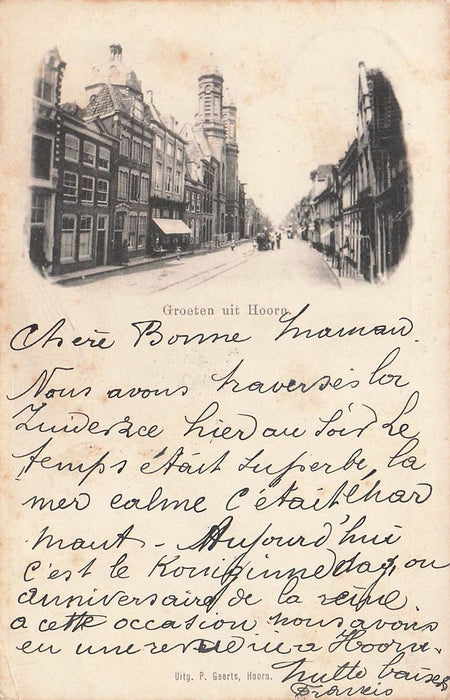 Groeten uit Hoorn.
Chère Bonne Maman.
Nous avons traversés la
Zuiderzee hier au soir Le
temps était superbe, la
mer calme c'était char
mant - Aujourd'hui
c'est le Koniginnedag, ou
anniversaire de la reine.
a cette occasion nous avons
eu une revue ici a Hoorn.
baisers
Francis
Uitg. P. Geerts, Hoorn.